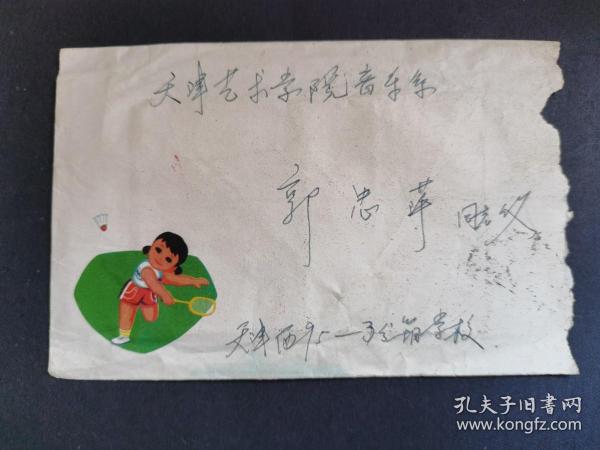 天津艺术学院音乐系
郭忠萍 同志 收
天津西 学校
孔夫子旧书网
www.kongfz.com